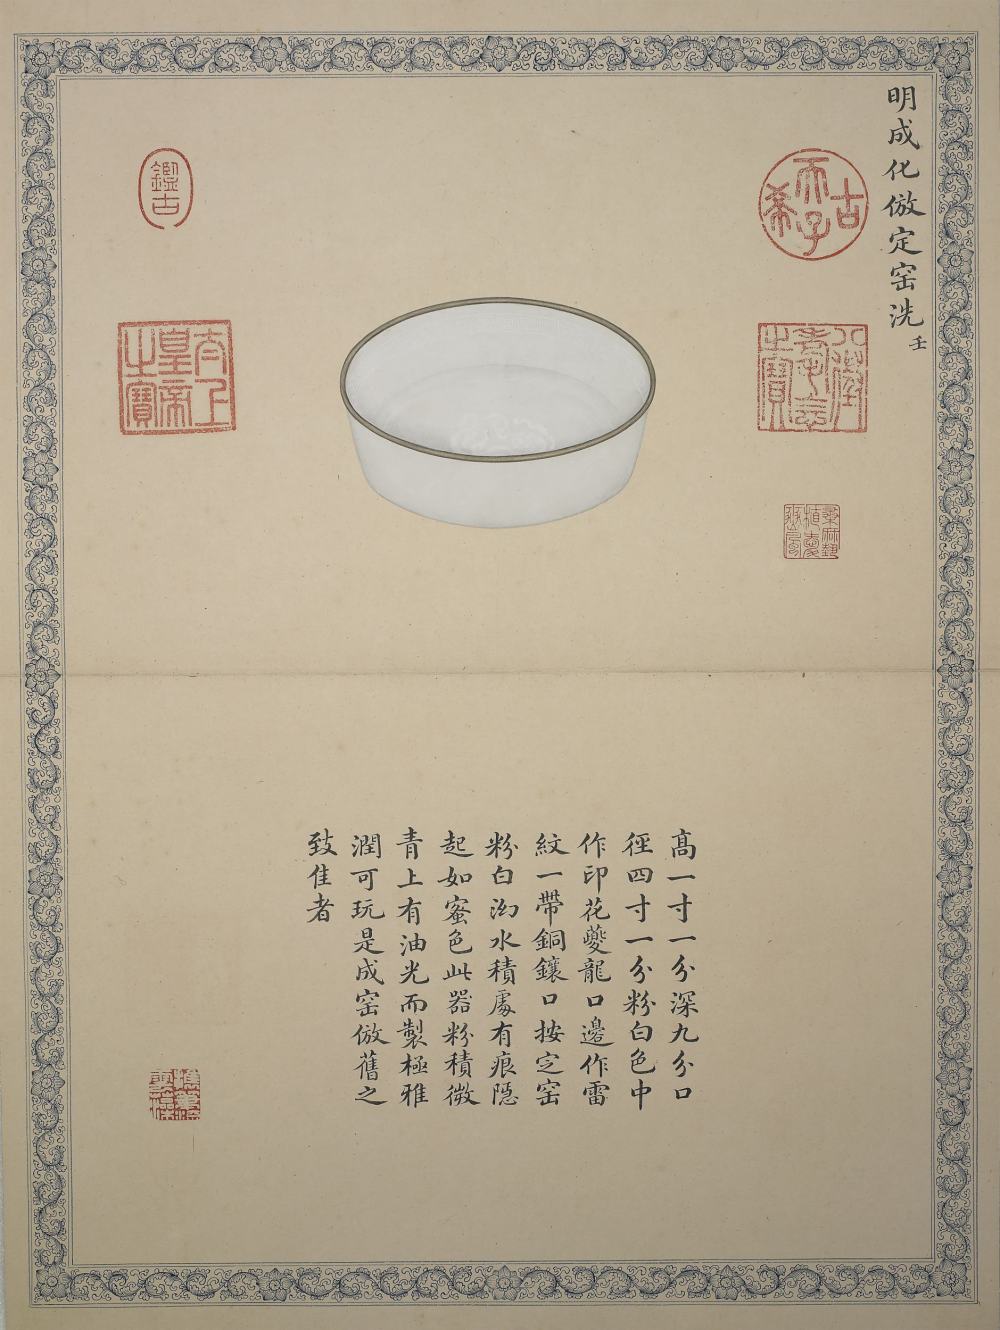 明成化倣定窑洗 壬
古希天子
八徵耄念之寶
鑑古
太上皇帝之寶
高一寸一分深九分口
徑四寸一分粉白色中
作印花夔龍口邊作雷
紋一帶銅鑲口按定窑
粉白泑水積處有痕隱
起如蜜色此器粉積微
青上有油光而製極雅
潤可玩是成窑倣舊之
致佳者